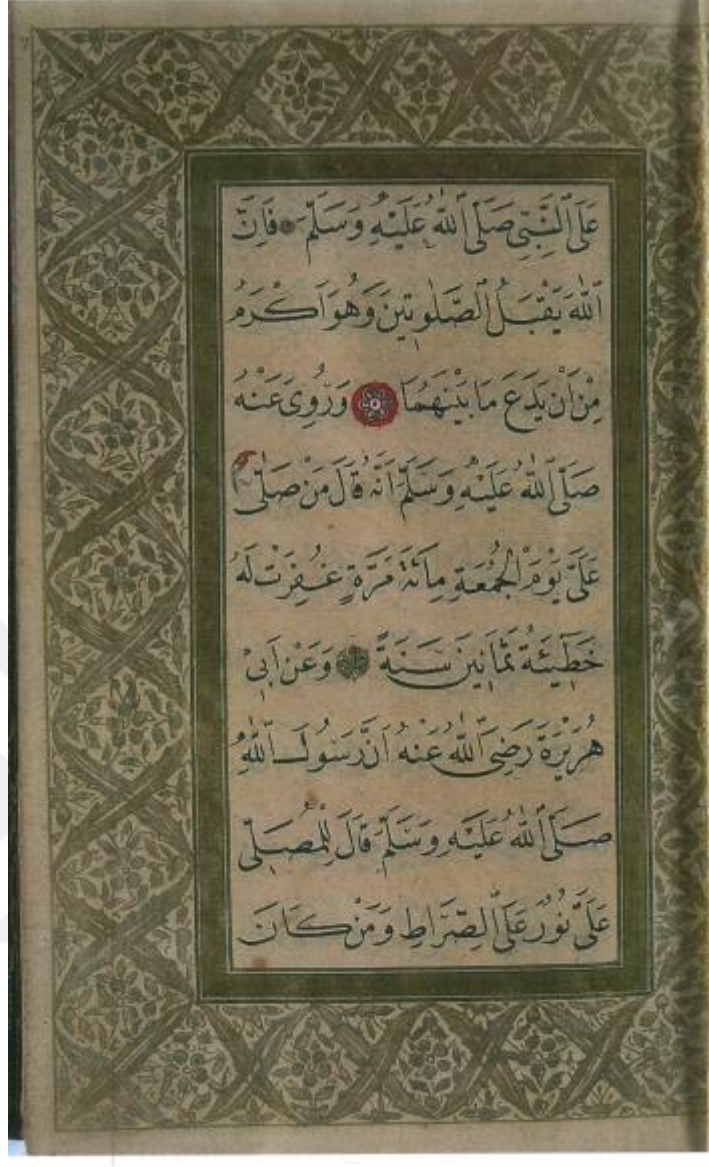 عَلَى ٱلنَّبِيِّ صَلَّى ٱللّٰهُ عَلَيْهِ وَسَلَّمَ فَاِنَّ
ٱللّٰهَ يَقْبَلُ ٱلصَّلٰوتَيْنِ وَهُوَ اَكْرَمُ
مِنْ اَنْ يَدَعَ مَا بَيْنَهُمَا وَرُوِيَ عَنْهُ
صَلَّى ٱللّٰهُ عَلَيْهِ وَسَلَّمَ اَنَّهُ قَالَ مَنْ صَلّٰى
عَلَىَّ يَوْمَ الْجُمُعَةِ مِائَةَ مَرَّةٍ غُفِرَتْ لَهُ
خَطِيئَةُ ثَمَانِينَ سَنَةً وَعَنْ اَبِيْ
هُرَيْرَةَ رَضِيَ ٱللّٰهُ عَنْهُ اَنَّ رَسُولَ ٱللّٰهِ
صَلَّى ٱللّٰهُ عَلَيْهِ وَسَلَّمَ قَالَ لِلْمُصَلِّي
عَلَىَّ نُورٌ عَلَى الصِّرَاطِ وَمَنْ كَانَ